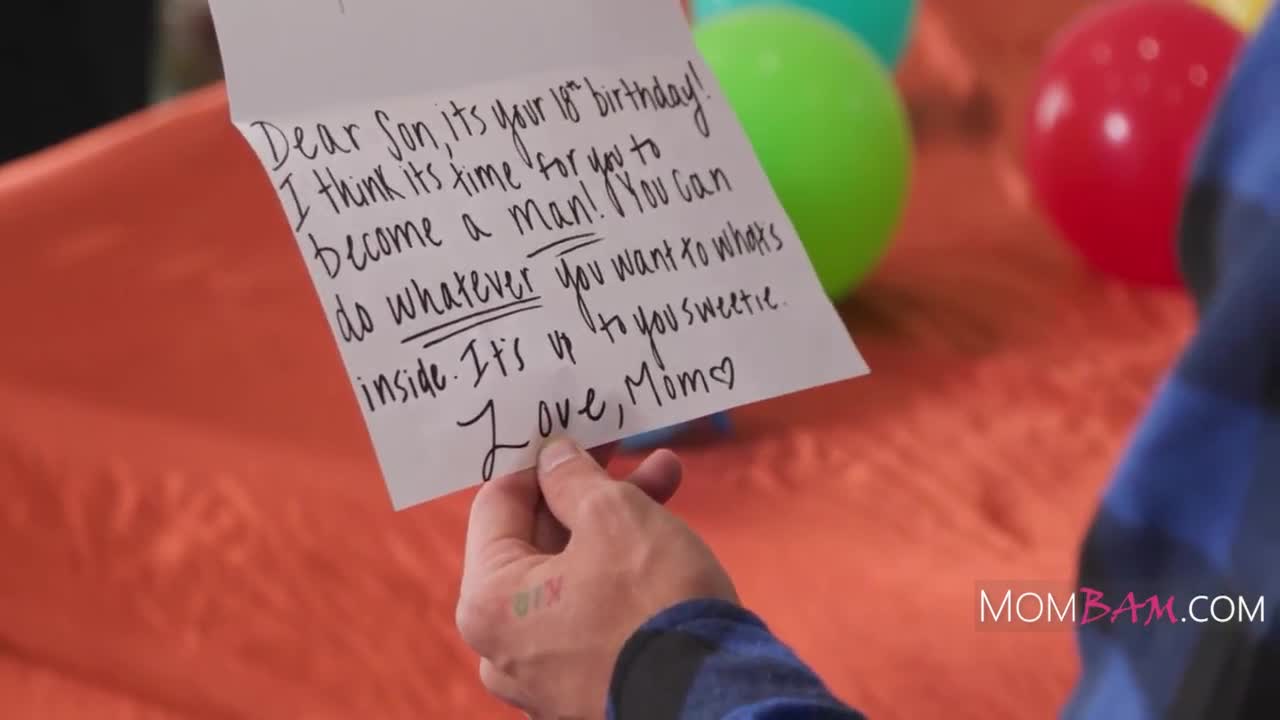 Dear Son, it's your 18th birthday!
I think it's time for you to
become a man! You can
do whatever you want to what's
inside. It's up to you sweetie.
Love, Mom♡
MOMBAM.COM